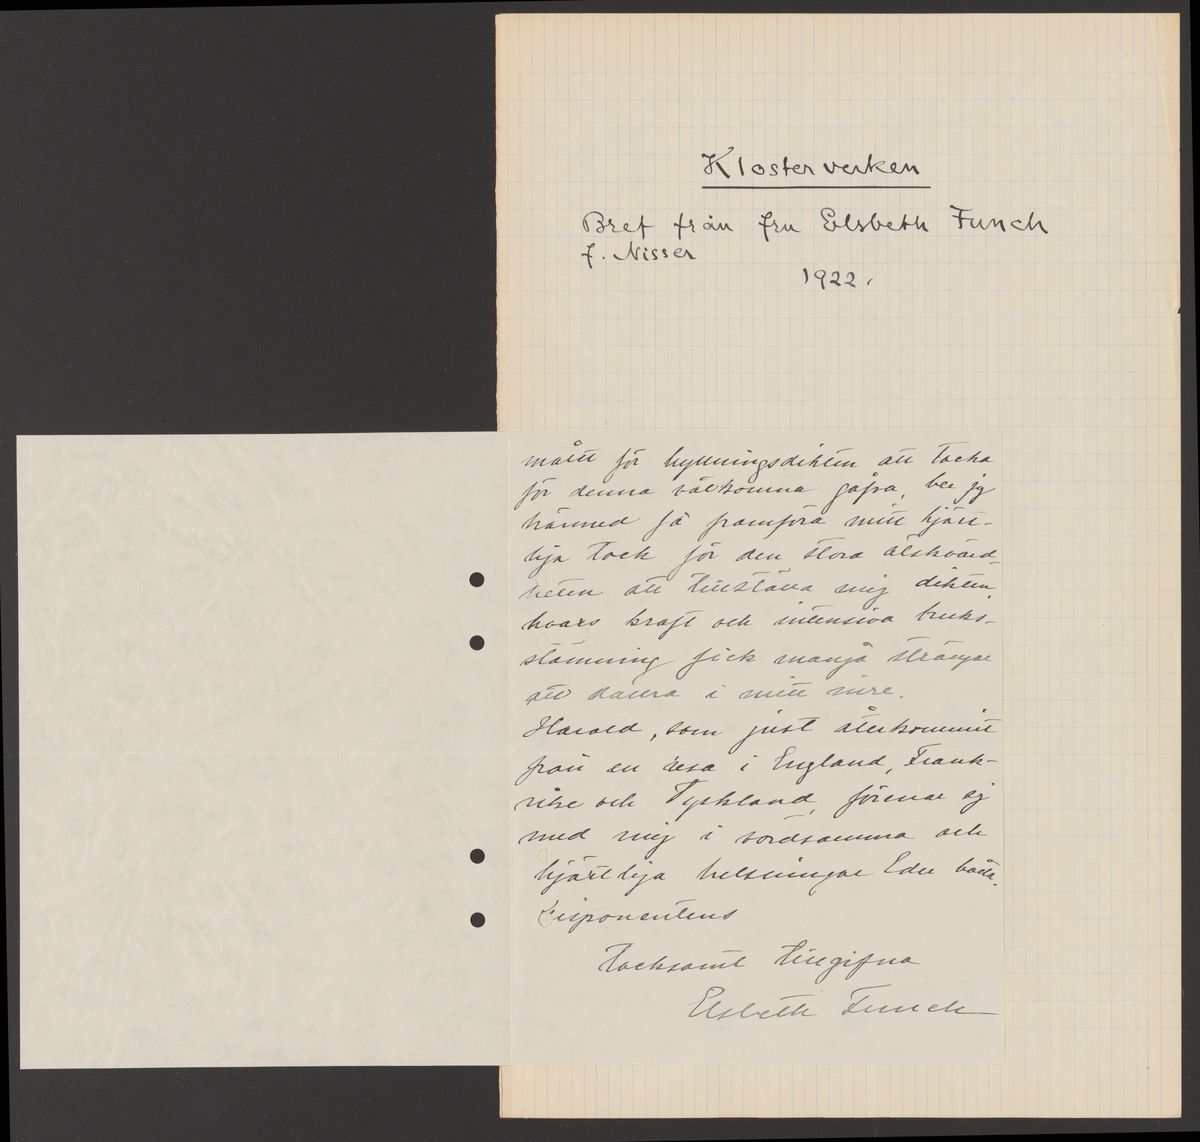 Klosterverken
Bref från fru Elsbeth Funch
f. Nisser
1922.
mått för hyllningsdikten att tacka
för denna välkomna gåfva, ber jg
härmed få framföra mitt hjärt-
liga tack för den stora älskvärd-
heten att tillställa mig dikten,
hvars kraft och intensiva bruks-
stämning fick många strängar
att dallra i mitt inre.
Harald, som just återkommit
från en resa i England, Frank-
rike och Tyskland, förenar sg
med mig i vördsamma och
hjärtliga helsningar Eder båda.
Disponentens
tacksamt tillgifna
Elsbeth Funch